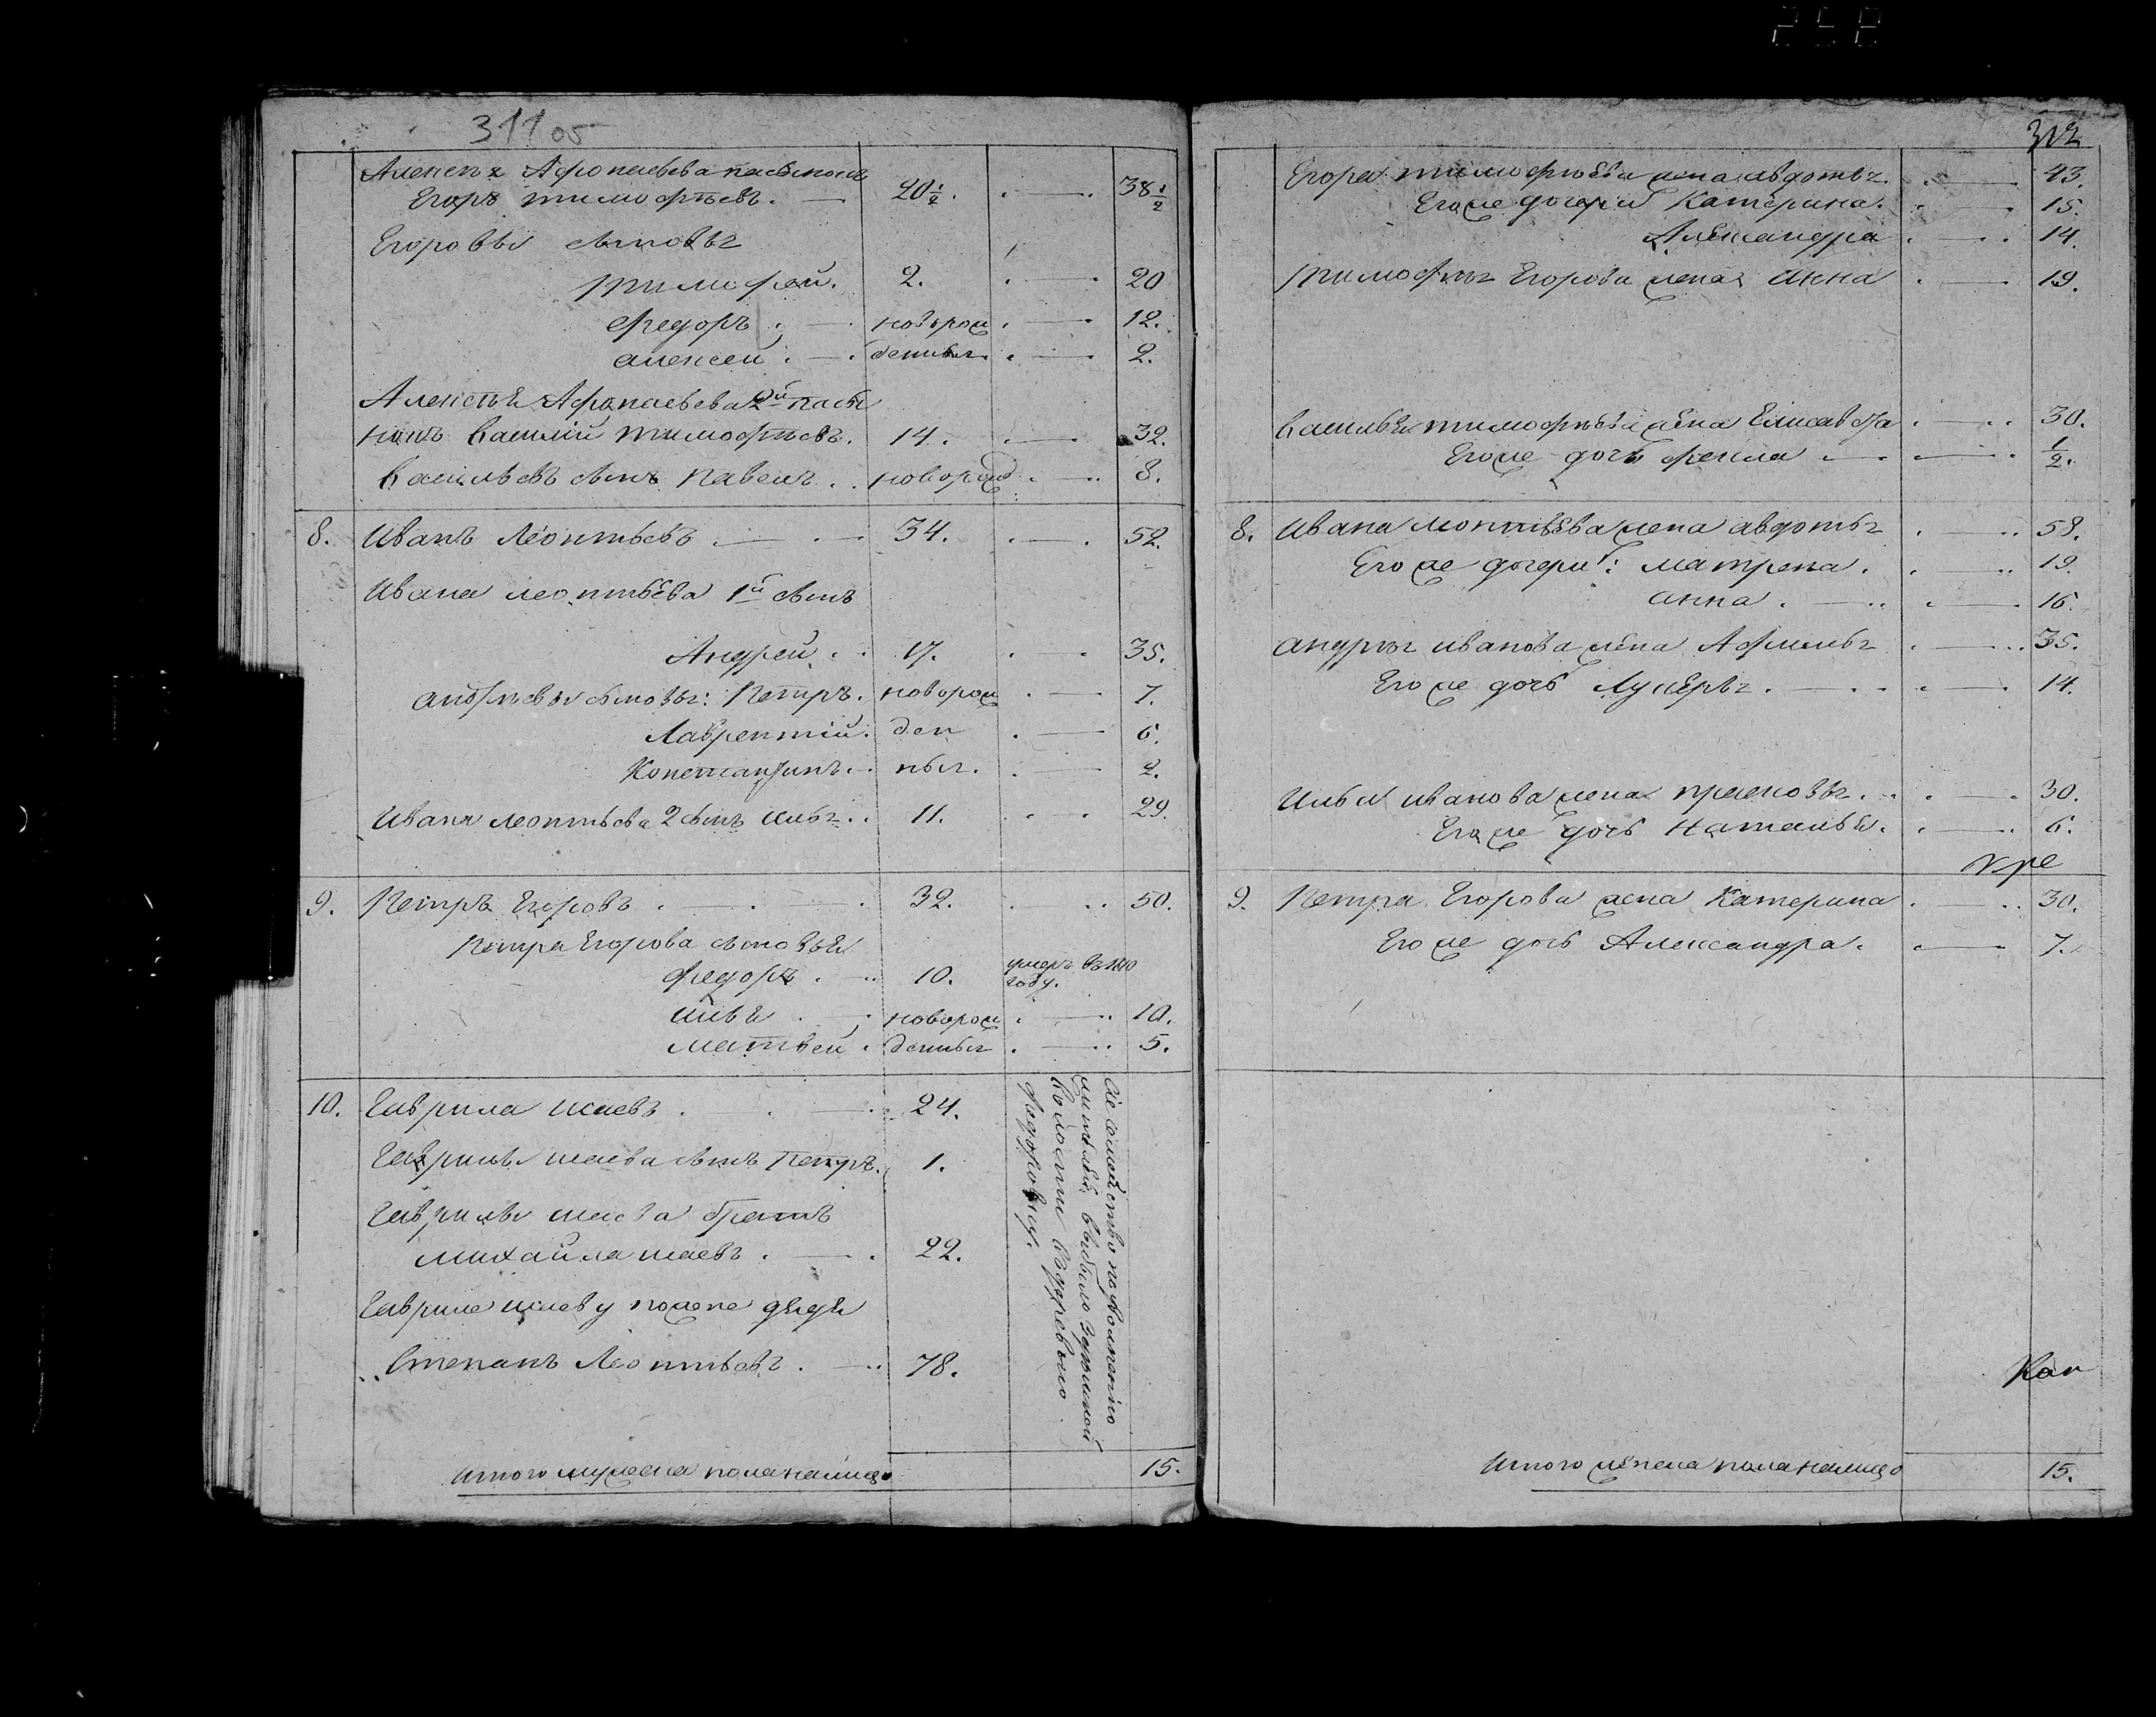 31105
Алексея Афонасьева пасынокъ
Егоръ Тимофѣевъ. 20 1/2. 38 1/2
Егоровы сыновья
Тимофей. 2. 20
Федоръ новорож 12.
Алексей денныя 2.
Алексѣя Афонасьева 2й пасы
нокъ Василий Тимофѣевъ. 14. 32.
Васильевъ сынъ Павелъ новорож 8.
8. Иванъ Леонтьевъ 34. 52.
Ивана Леонтьева 1й сынъ
Андрей 17. 35.
Андреевы сыновья: Петръ. новорож 7.
Лаврентий. ден 6.
Константинъ ныя. 2.
Ивана Леонтьева 2 сынъ Илья 11. 29.
9. Петръ Егоровъ 32. 50.
Петра Егорова сыновья
Федоръ 10. умеръ въ 1810
году.
Илья новорож 10.
Матвей денныя 5.
10. Гаврила Исаевъ 24.
Гаврилы Исаева сынъ Петръ. 1.
Гаврилы Исаева братъ
Михайла Исаевъ 22.
Гавриле Исаеву по жене дядя
Степанъ Леонтьевъ 78.
Сие семейство по дозволению
выбыло
волости
Итого мужеска пола налицо 15.
312
Егора Тимофѣева жена Авдотья 43.
Его же дочери Катерина. 15.
Александра 14.
Тимофея Егорова жена Анна 19.
Василья Тимофѣева жена Елисавета 30.
Его же дочь Фекла 1/2.
8. Ивана Леонтьева жена Авдотья 58.
Его же дочери: Матрена. 19.
Анна. 16.
Андрея Иванова жена Афимья 35.
Его же дочь Лукерья. 14.
Ильи Иванова жена Прасковья 30.
Его же дочь Наталья. 6.
9. Петра Егорова жена Катерина 30.
Его же дочь Александра. 7.
Итого женска пола налицо 15.